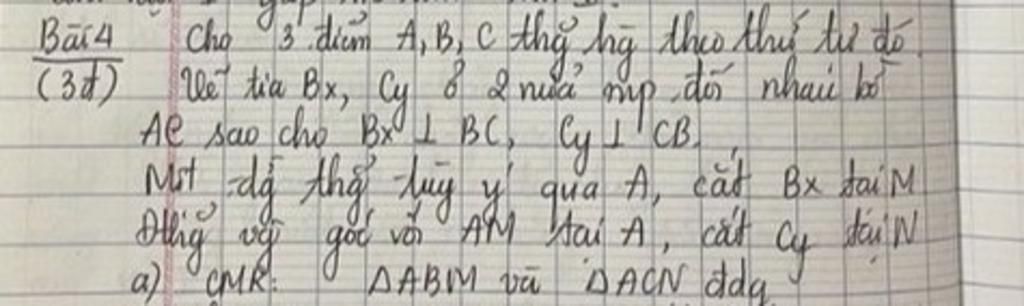 Bài 4 Cho 3 điểm A, B, C thẳg hg theo thứ tự đó
(3đ) Vẽ tia Bx, Cy ở 2 nửa mp đối nhau bờ
AC sao cho Bx ⊥ BC, Cy ⊥ CB.
Một đg thg tùy ý qua A, cắt Bx tại M
Đthg vg góc với AM tại A, cắt Cy tại N
a) CMR: ΔABM và ΔACN đdg